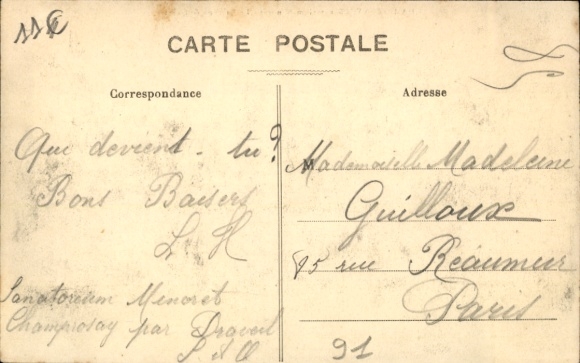 11 €
CARTE POSTALE
Correspondance
Que devient-tu?
Bons Baisers
L H
Sanatorium Minoret
Champrosay par Draveil
S et O
Adresse
Mademoiselle Madeleine
Guilloux
85 rue Réaumur
Paris
91